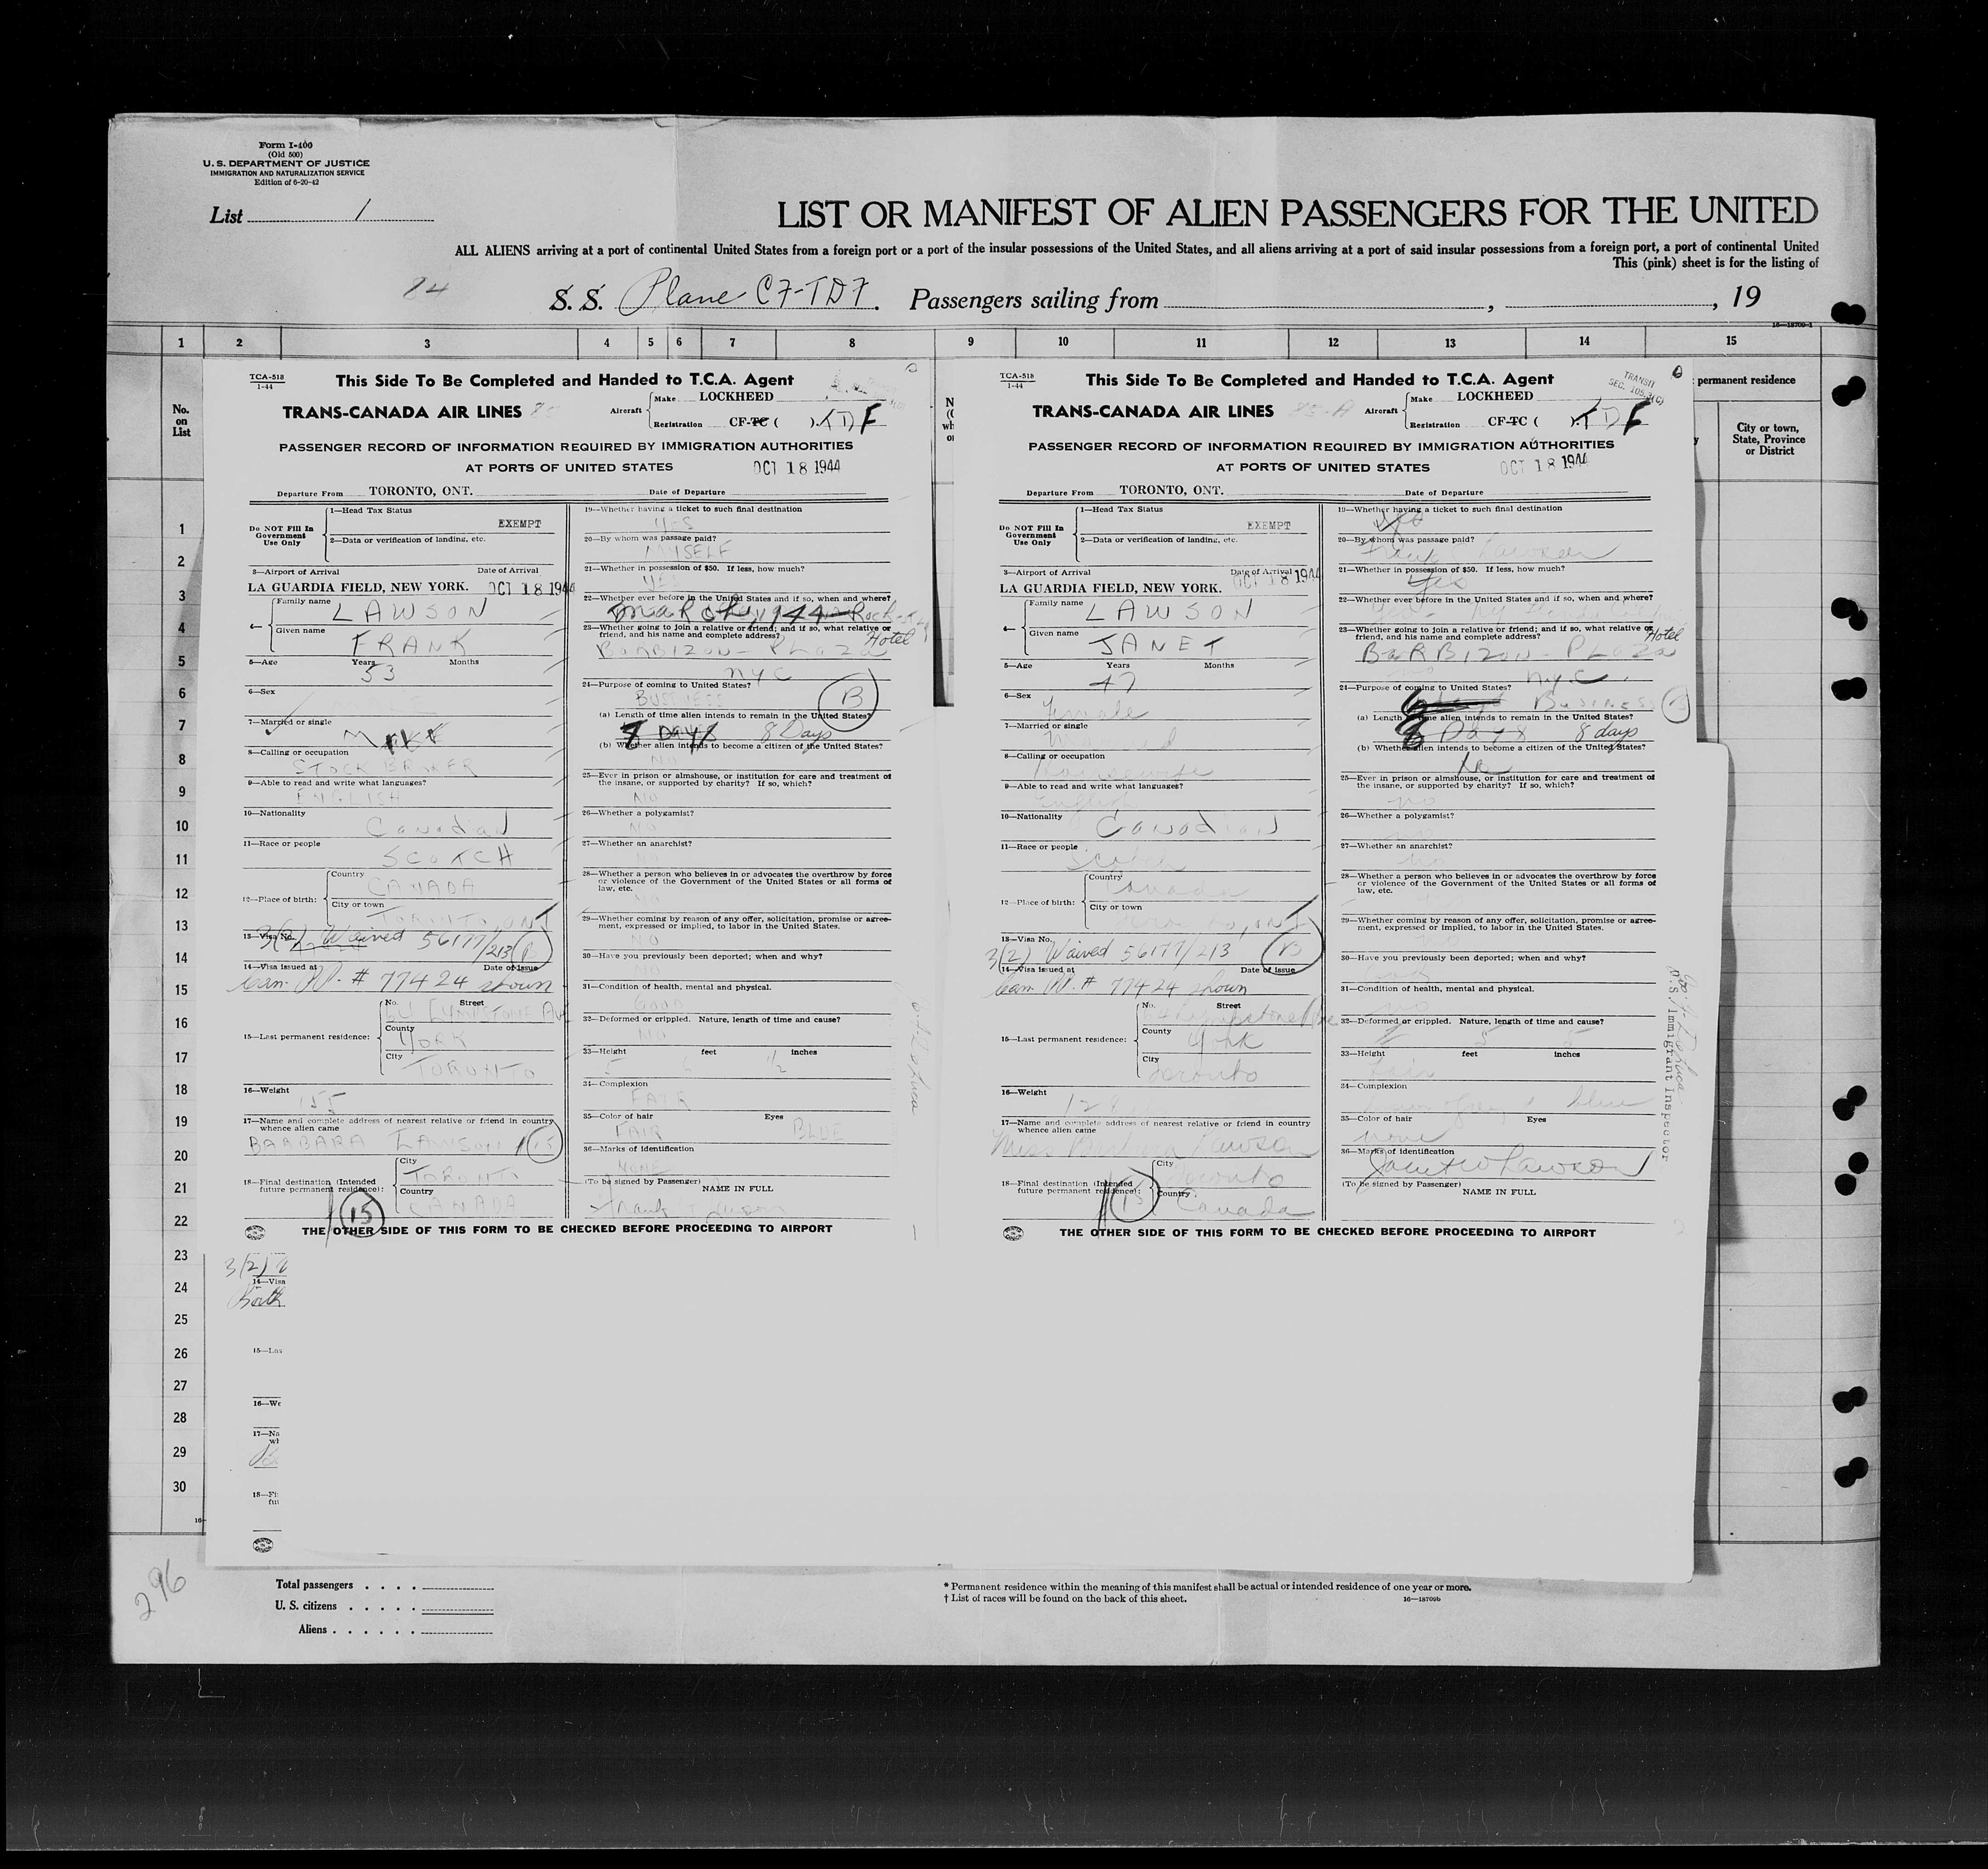 Form I-400
(Old 500)
U. S. DEPARTMENT OF JUSTICE
IMMIGRATION AND NATURALIZATION SERVICE
Edition of 6-20-42
List 1
LIST OR MANIFEST OF ALIEN PASSENGERS FOR THE UNITED
ALL ALIENS arriving at a port of continental United States from a foreign port or a port of the insular possessions of the United States, and all aliens arriving at a port of said insular possessions from a foreign port, a port of continental United
This (pink) sheet is for the listing of
84
S. S. Plane CF-TDF. Passengers sailing from , , 19
16—18709-1
1 2 3 4 5 6 7 8 9 10 11 12 13 14 15
No.
on
List
permanent residence
City or town,
State, Province
or District
1
2
3
4
5
6
7
8
9
10
11
12
13
14
15
16
17
18
19
20
21
22
23
24
25
26
27
28
29
30
TCA-518
1-44
This Side To Be Completed and Handed to T.C.A. Agent
TRANS-CANADA AIR LINES
Aircraft Make LOCKHEED
Registration CF-TC ( ) TDF
PASSENGER RECORD OF INFORMATION REQUIRED BY IMMIGRATION AUTHORITIES
AT PORTS OF UNITED STATES OCT 18 1944
Departure From TORONTO, ONT. Date of Departure
Do NOT Fill In
Government
Use Only
1—Head Tax Status
EXEMPT
2—Data or verification of landing, etc.
3—Airport of Arrival Date of Arrival
LA GUARDIA FIELD, NEW YORK. OCT 18 1944
4— Family name LAWSON
Given name FRANK
5—Age Years Months
53
6—Sex
7—Married or single
8—Calling or occupation
STOCK BROKER
9—Able to read and write what languages?
ENGLISH
10—Nationality
Canadian
11—Race or people
SCOTCH
12—Place of birth: Country
CANADA
City or town
TORONTO, ONT
13—Visa No.
3(2) Waived 56177/213 B
14—Visa issued at Date of issue
Can. # 77424 shown
15—Last permanent residence: No. Street
64 LYMPSTONE AVE
County
YORK
City
TORONTO
16—Weight
155
17—Name and complete address of nearest relative or friend in country
whence alien came
BARBARA LAWSON 15
18—Final destination (Intended
future permanent residence): City
TORONTO
Country
CANADA
15
19—Whether having a ticket to such final destination
YES
20—By whom was passage paid?
MYSELF
21—Whether in possession of $50. If less, how much?
YES
22—Whether ever before in the United States and if so, when and where?
March, 1944
23—Whether going to join a relative or friend; and if so, what relative or
friend, and his name and complete address?
Hotel
BARBIZON-PLAZA
NYC
24—Purpose of coming to United States?
BUSINESS B
(a) Length of time alien intends to remain in the United States?
DAYS 8 Days
(b) Whether alien intends to become a citizen of the United States?
NO
25—Ever in prison or almshouse, or institution for care and treatment of
the insane, or supported by charity? If so, which?
NO
26—Whether a polygamist?
NO
27—Whether an anarchist?
NO
28—Whether a person who believes in or advocates the overthrow by force
or violence of the Government of the United States or all forms of
law, etc.
NO
29—Whether coming by reason of any offer, solicitation, promise or agree-
ment, expressed or implied, to labor in the United States.
NO
30—Have you previously been deported; when and why?
NO
31—Condition of health, mental and physical.
GOOD
32—Deformed or crippled. Nature, length of time and cause?
NO
33—Height feet inches
5 6 1/2
34—Complexion
FAIR
35—Color of hair Eyes
FAIR BLUE
36—Marks of identification
NONE
(To be signed by Passenger)
NAME IN FULL
THE OTHER SIDE OF THIS FORM TO BE CHECKED BEFORE PROCEEDING TO AIRPORT
TCA-518
1-44
This Side To Be Completed and Handed to T.C.A. Agent
TRANSIT
TRANS-CANADA AIR LINES
Aircraft Make LOCKHEED
Registration CF-TC ( ) TDF
PASSENGER RECORD OF INFORMATION REQUIRED BY IMMIGRATION AUTHORITIES
AT PORTS OF UNITED STATES OCT 18 1944
Departure From TORONTO, ONT. Date of Departure
Do NOT Fill In
Government
Use Only
1—Head Tax Status
EXEMPT
2—Data or verification of landing, etc.
3—Airport of Arrival Date of Arrival
LA GUARDIA FIELD, NEW YORK. OCT 18 1944
4— Family name LAWSON
Given name JANET
5—Age Years Months
47
6—Sex
Female
7—Married or single
Married
8—Calling or occupation
Housewife
9—Able to read and write what languages?
English
10—Nationality
Canadian
11—Race or people
Scotch
12—Place of birth: Country
Canada
City or town
Toronto, ONT
13—Visa No.
3(2) Waived 56177/213 B
14—Visa issued at Date of issue
Can. # 77424 shown
15—Last permanent residence: No. Street
64 Lympstone Ave
County
York
City
Toronto
16—Weight
17—Name and complete address of nearest relative or friend in country
whence alien came
Miss Barbara Lawson
18—Final destination (Intended
future permanent residence): City
Toronto
Country
Canada
15
19—Whether having a ticket to such final destination
Yes
20—By whom was passage paid?
Frank Lawson
21—Whether in possession of $50. If less, how much?
Yes
22—Whether ever before in the United States and if so, when and where?
23—Whether going to join a relative or friend; and if so, what relative or
friend, and his name and complete address?
Hotel
BARBIZON-PLAZA
NYC.
24—Purpose of coming to United States?
Business B
(a) Length of time alien intends to remain in the United States?
Days 8 days
(b) Whether alien intends to become a citizen of the United States?
No
25—Ever in prison or almshouse, or institution for care and treatment of
the insane, or supported by charity? If so, which?
no
26—Whether a polygamist?
no
27—Whether an anarchist?
no
28—Whether a person who believes in or advocates the overthrow by force
or violence of the Government of the United States or all forms of
law, etc.
29—Whether coming by reason of any offer, solicitation, promise or agree-
ment, expressed or implied, to labor in the United States.
30—Have you previously been deported; when and why?
Good
31—Condition of health, mental and physical.
no
32—Deformed or crippled. Nature, length of time and cause?
5 5
33—Height feet inches
Fair
34—Complexion
blue
35—Color of hair Eyes
none
36—Marks of identification
Janet W Lawson
(To be signed by Passenger)
NAME IN FULL
THE OTHER SIDE OF THIS FORM TO BE CHECKED BEFORE PROCEEDING TO AIRPORT
U.S. Immigrant Inspector
3(2)
14—Visa
15—Las
16—We
17—Na
wh
18—Fi
fut
296
Total passengers
U. S. citizens
Aliens
* Permanent residence within the meaning of this manifest shall be actual or intended residence of one year or more.
† List of races will be found on the back of this sheet.
16—18709b